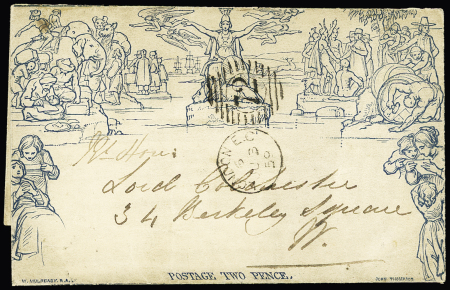 12
Rt. Hon:
Lord Colchester
34 Berkeley Square
W.
W. MULREADY. R.A.
POSTAGE TWO PENCE.
JOHN THOMPSON